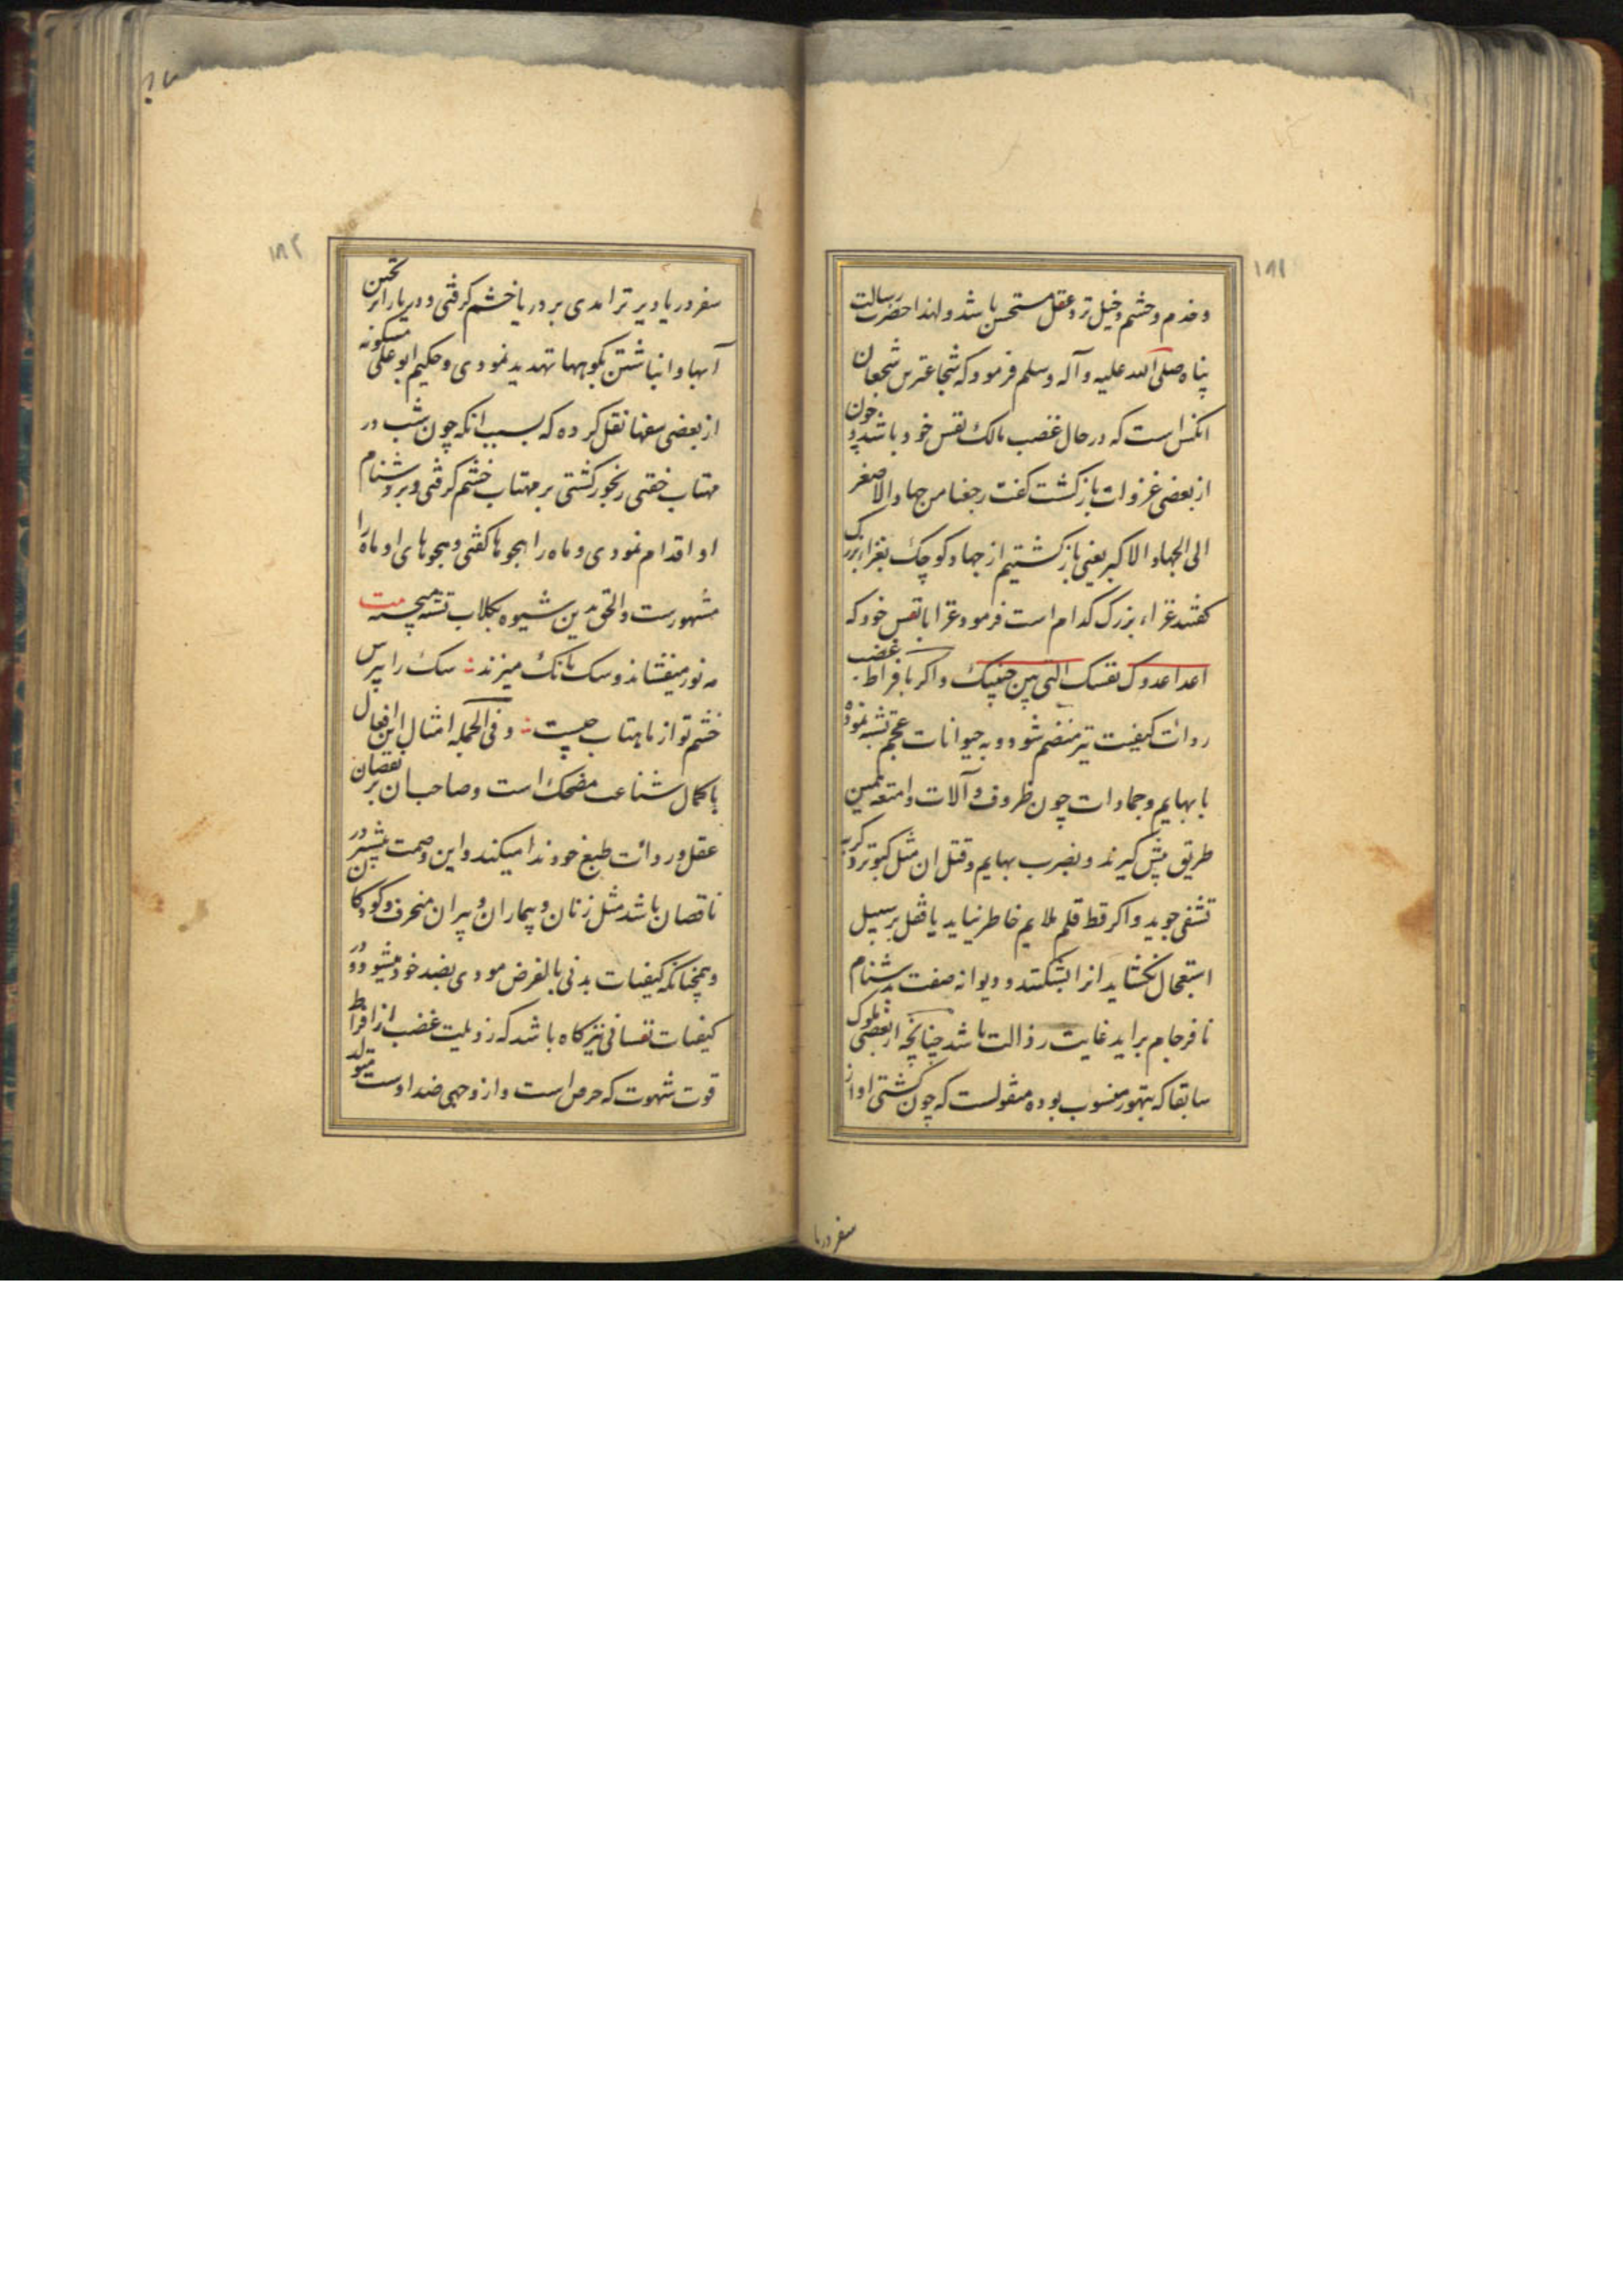 ۱۸۱
و خدم و حشم و خیل نزد عقل مستحسن باشد و لهذا حضرت رسالت
پناه صلی الله علیه و آله و سلم فرمود که شجاعترین شجعان
انکس است که در حال غضب مالک نفس خود باشد و چون
از بعضی غزوات بازگشت گفت رجعنا من جهاد الاصغر
الی الجهاد الاکبر یعنی بازگشتیم از جهاد کوچک بغزاء بزرک
گفتند غزاء بزرک کدام است فرمود غزا با نفس خود که
اعدا عدوک نفسک التی بین جنبیک و اگر با فراط غضب
ردائت کیفیت نیز منضم شود و به حیوانات عجم تشبه نموده
با بهایم و جمادات چون ظروف و آلات و امتعه همین
طریق پیش گیرند و بضرب بهایم و قتل ان مثل کبوتر و گربه
تشفی جوید و اگر قط قلم ملایم خاطر نیاید یا قفل بر سبیل
استعجال نگشاید انرا بشکنند و دیوانه صفت بدشنام
نافرجام براید غایت رذالت باشد چنانچه از بعضی ملوک
سابقا که بتهور منسوب بوده منقولست که چون کشتی او از
سفر دریا
۱۸۲
سفر دریا دیرتر امدی بر دریا خشم گرفتی و دریا را بر یختن
آبها و انباشتن بکوهها تهدید نمودی و حکیم ابو علی مسکویه
از بعضی سفها نقل کرده که بسبب انکه چون شب در
مهتاب خفتی رنجور گشتی بر مهتاب خشم گرفتی و بر دشنام
او اقدام نمودی و ماه را هجوها گفتی و هجوهای او ماه را
مشهورست و الحق بدین شیوه بکلاب تشبه میجسته بیت
مه نور میفشاند و سک بانک میزند : سک را بپرس
خشم تو از ماهتاب چیست : و فی الجمله امثال این افعال
با کمال شناعت مضحک است و صاحبان بر نقصان
عقل و ردائت طبع خود ندا میکنند و این وصمت بیشتر در
ناقصان باشد مثل زنان و بیماران و پیران منحرف و کودکان
و همچنانکه کیفیات بدنی بالعرض مودی بضد خود میشود در
کیفیات نفسانی نیز گاه باشد که رذیلت غضب از افراط
قوت شهوت که حرص است و از وجهی ضد اوست متولد